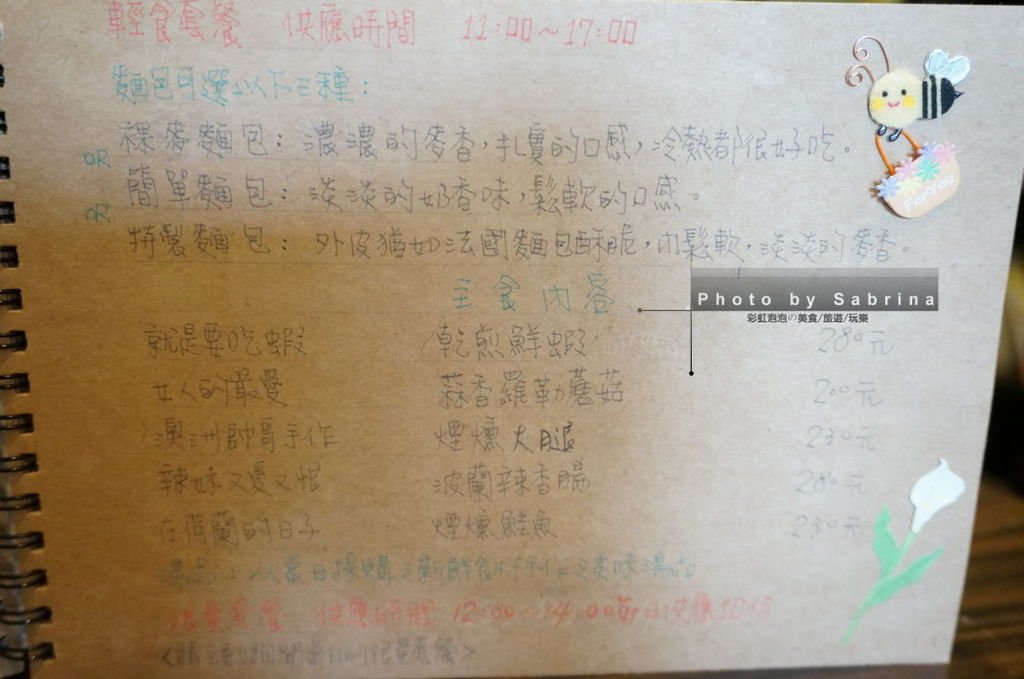 輕食套餐 供應時間 11:00~17:00
麵包可選以下三種：
裸麥麵包：濃濃的麥香，扎實的口感，冷熱都很好吃。
OR
簡單麵包：淡淡的奶香味，鬆軟的口感。
特製麵包：外皮猶如法國麵包酥脆，內鬆軟，淡淡的麥香。
ForYou
主食內容
Photo by Sabrina
彩虹泡泡の美食/旅遊/玩樂
就是要吃蝦 乾煎鮮蝦 280元
女人的最愛 蒜香羅勒蘑菇 200元
澳洲帥哥手作 煙燻火腿 230元
辣妹又愛又恨 波蘭辣香腸 280元
在荷蘭的日子 煙燻鮭魚 230元
湯品：以當日採購之新鮮食材手作淡味湯品
限量套餐 供應時間 12:00~14:00每日供應10份